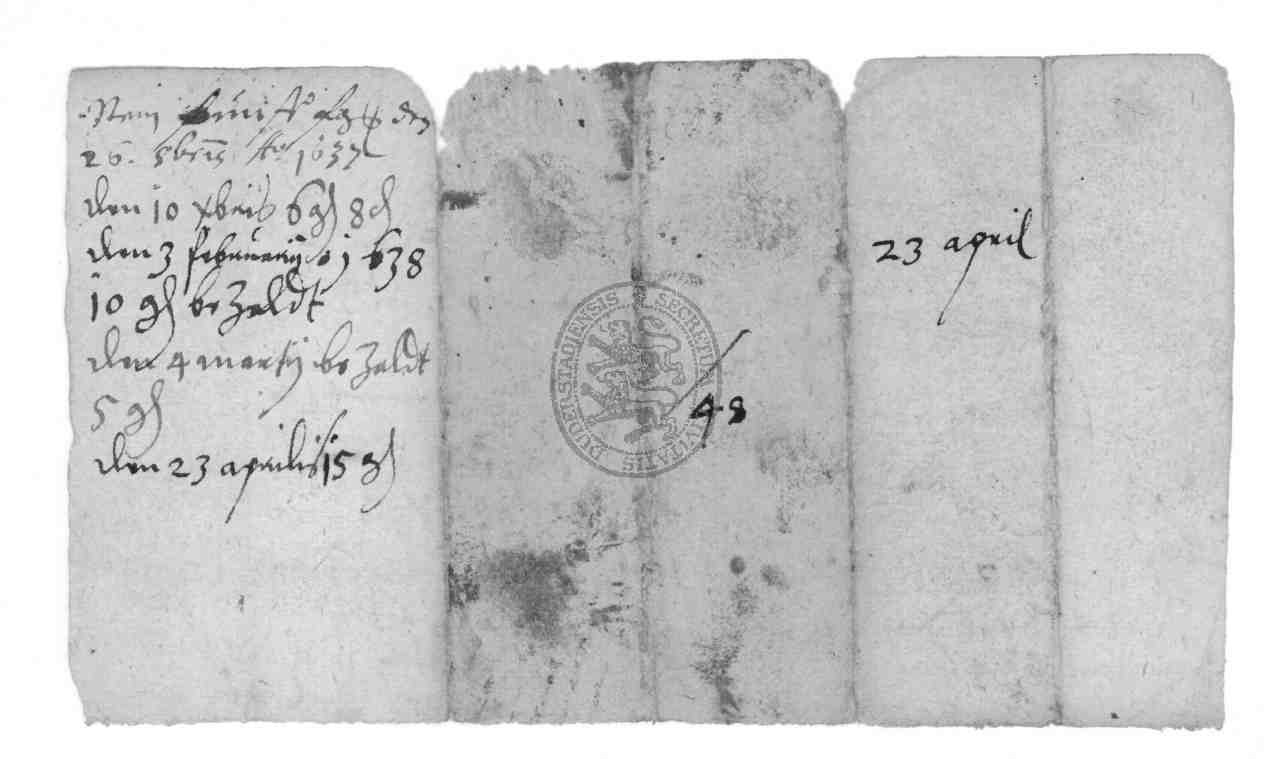 den
26. 8bris Ao 1637
den 10 xbris 6 gl 8 d
den 3 februarij 1638
10 gl bezaldt
den 4 martij bezaldt
5 gl
den 23 aprilis 15 gl
SECRETUM CIVITATIS DUDERSTADIENSIS
48
23 april